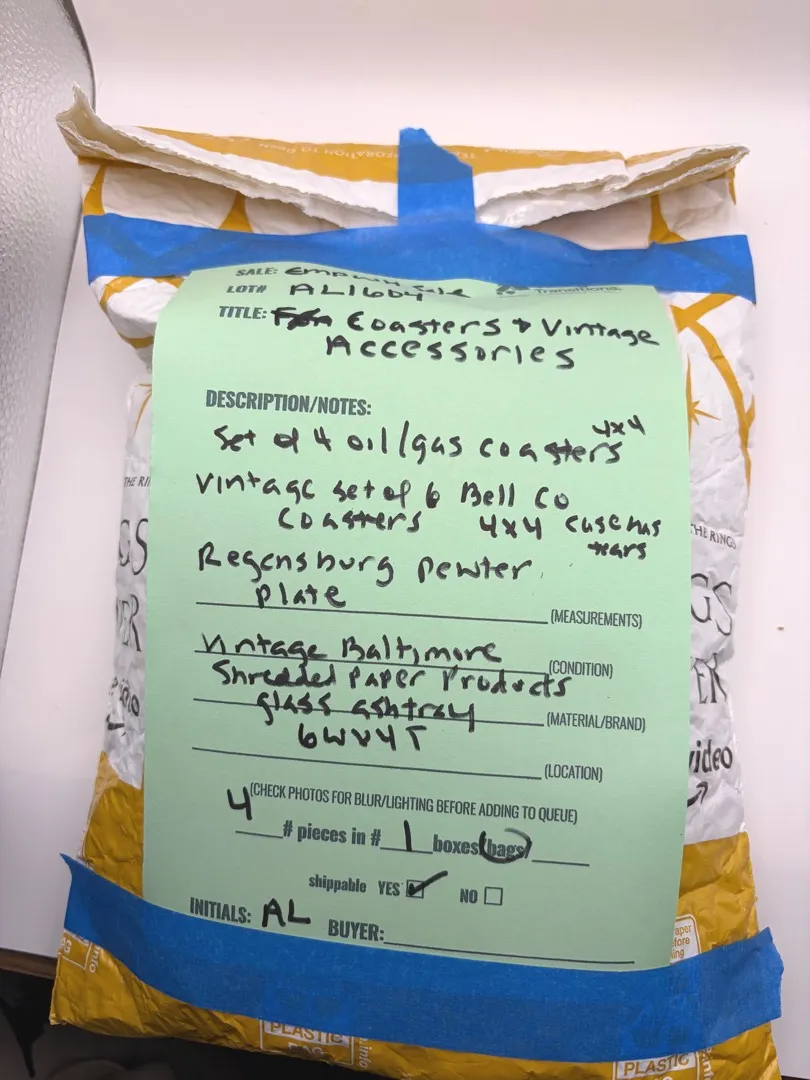 SALE:
LOT#
TITLE: Coasters & Vintage
Accessories
DESCRIPTION/NOTES:
Set of 4 oil/gas coasters 4x4
Vintage set of 6 Bell Co
Coasters 4x4 case has
tears
Regensburg pewter
plate
(MEASUREMENTS)
Vintage Baltimore
(CONDITION)
Shredded Paper Products
glass ashtray
(MATERIAL/BRAND)
6WV4T
(LOCATION)
(CHECK PHOTOS FOR BLUR/LIGHTING BEFORE ADDING TO QUEUE)
4 # pieces in # 1 boxes/bags/
shippable YES NO
INITIALS: AL BUYER:
THE RINGS
video
PLASTIC
PLASTIC